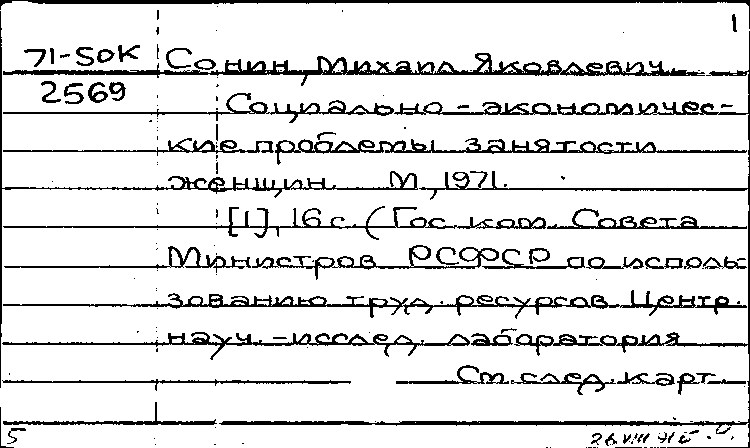 1
71-5ОК Сонин, Михаил Яковлевич.
2569 Социально-экономичес-
кие проблемы занятости
женщин. М., 1971.
[1], 16 с. (Гос ком. Совета
Министров РСФСР по исполь-
зованию труд. ресурсов Центр.
науч.-исслед. лаборатория
См. след. карт.
5 26 VIII